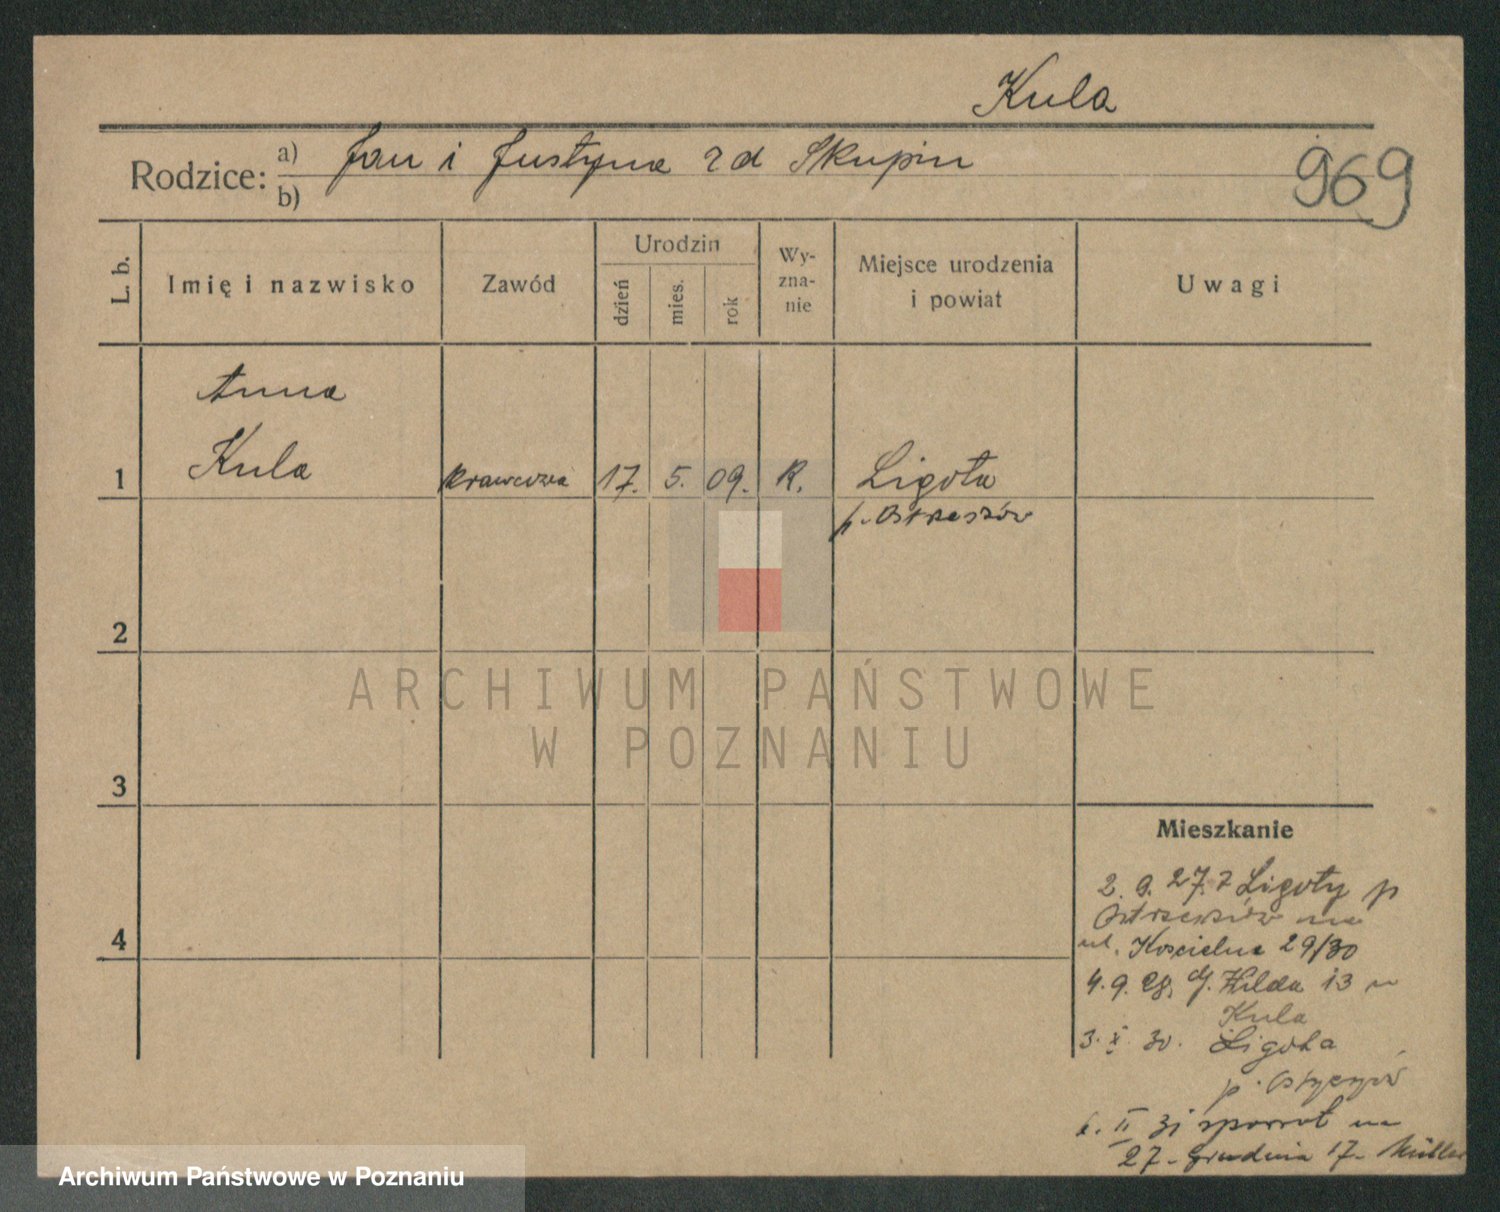 Kula
Rodzice: a) Jan i Justyna z d Skupin
b)
969
L. b. Imię i nazwisko Zawód Urodzin dzień mies. rok Wy-zna-nie Miejsce urodzenia i powiat Uwagi
Anna
1 Kula krawczia 17. 5. 09. R. Ligota
p. Ostrzeszów
2
ARCHIWUM PAŃSTWOWE
W POZNANIU
3
Mieszkanie
2. 9. 27. z Ligoty p
Ostrzeszów na
4
ul. Kościelna 29/30
4. 9. 28. G. Wilda 13 u
Kula
3. X. 30. Ligota
p.
6. II 31 zpowrot na
27 Grudnia 17 Müller
Archiwum Państwowe w Poznaniu